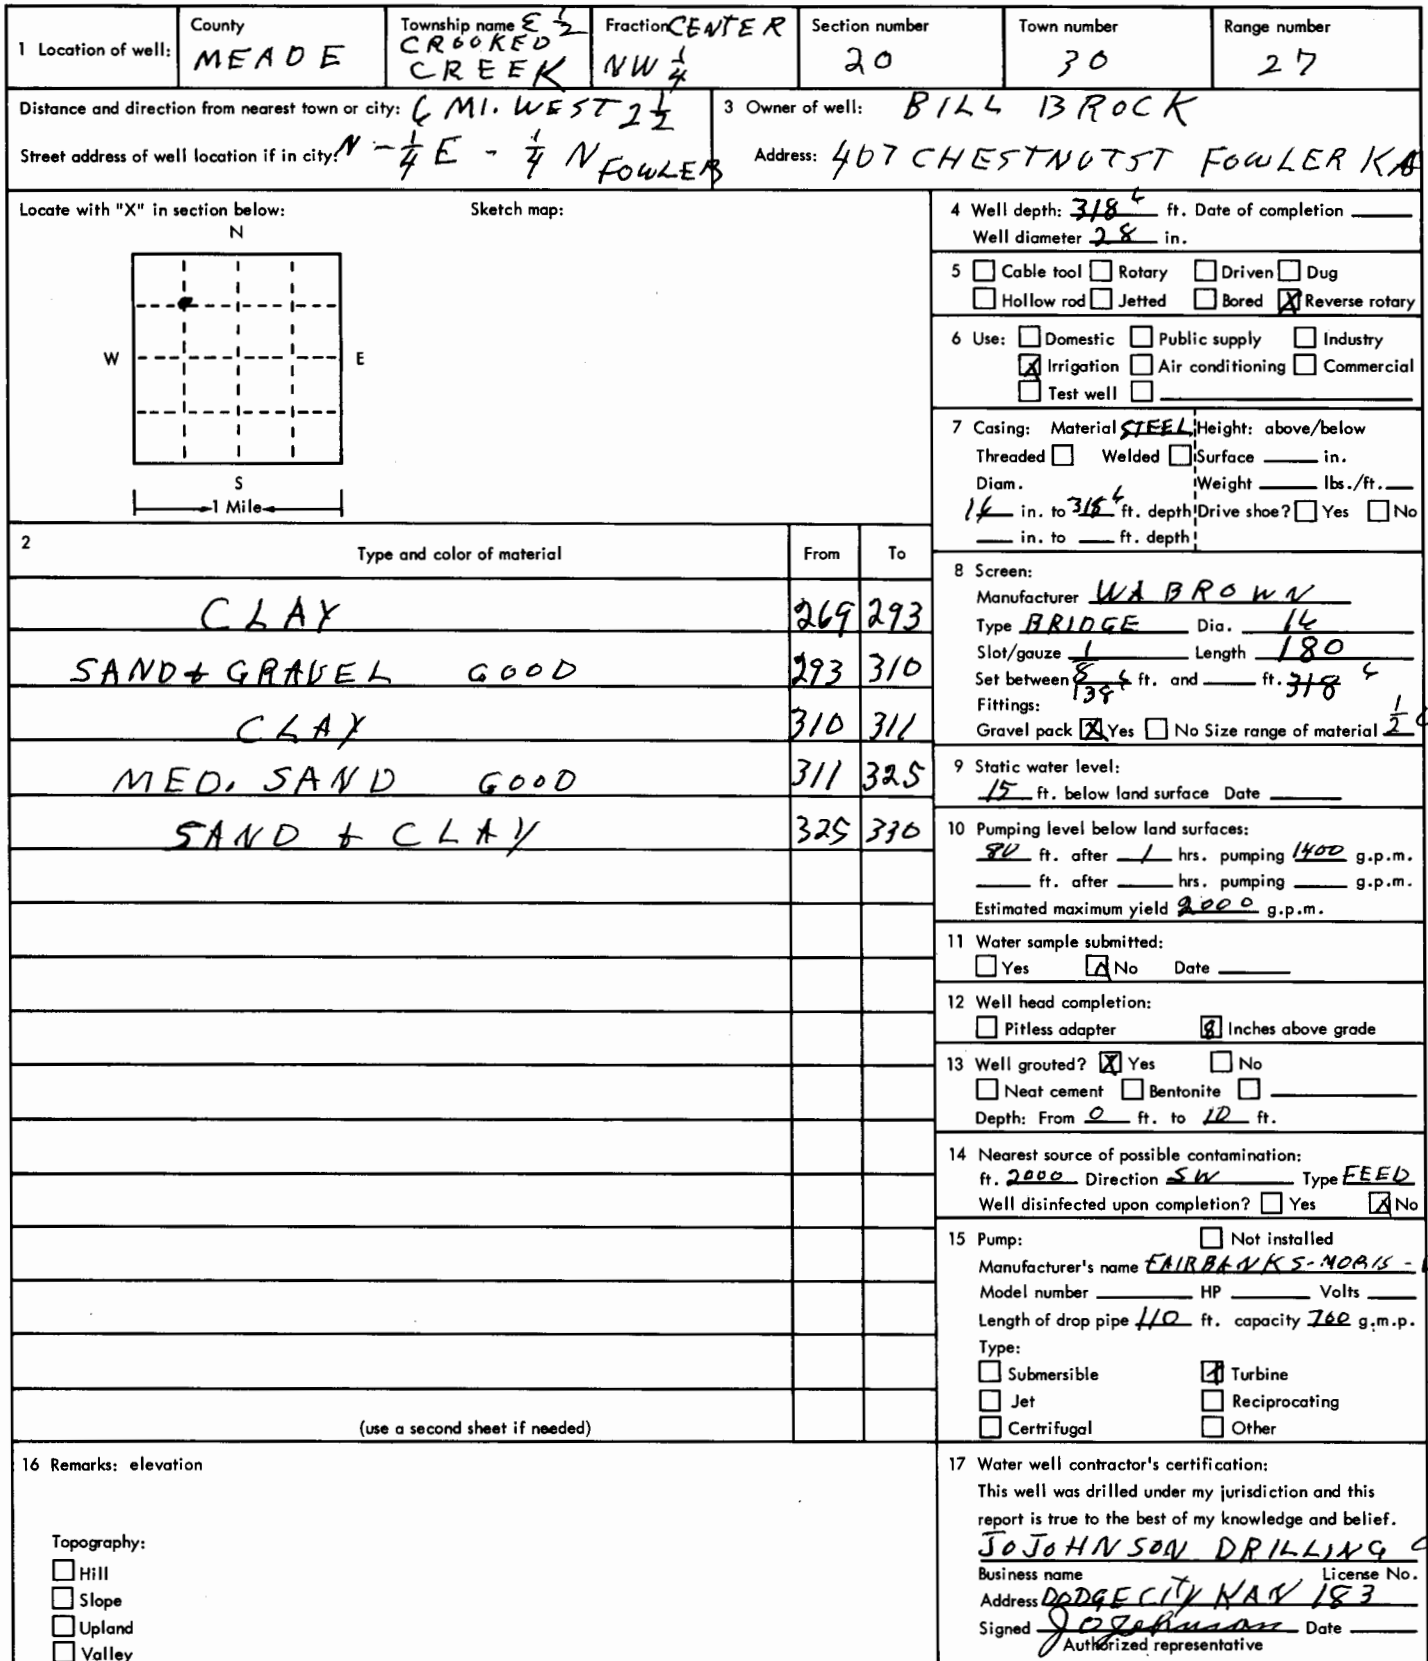 1 Location of well:
County
MEADE
Township name E 1/2
CROOKED
CREEK
Fraction CENTER
NW 1/4
Section number
20
Town number
30
Range number
27
Distance and direction from nearest town or city: 6 MI. WEST 2 1/2
Street address of well location if in city: N - 1/4 E - 1/4 N FOWLER
3 Owner of well: BILL BROCK
Address: 407 CHESTNUT ST FOWLER
Locate with "X" in section below:
Sketch map:
N
W
E
S
1 Mile
2
Type and color of material From To
CLAY 269 293
SAND & GRAVEL GOOD 293 310
CLAY 310 311
MED. SAND GOOD 311 325
SAND & CLAY 325 330
(use a second sheet if needed)
4 Well depth: 318 ft. Date of completion
Well diameter 28 in.
5 Cable tool Rotary Driven Dug
Hollow rod Jetted Bored X Reverse rotary
6 Use: Domestic Public supply Industry
X Irrigation Air conditioning Commercial
Test well
7 Casing: Material STEEL Height: above/below
Threaded Welded Surface in.
Diam. Weight lbs./ft.
16 in. to 318 ft. depth Drive shoe? Yes No
in. to ft. depth
8 Screen:
Manufacturer WA BROWN
Type BRIDGE Dia. 16
Slot/gauze 1 Length 180
Set between 138 ft. and ft. 318
Fittings:
Gravel pack X Yes No Size range of material 1/2
9 Static water level:
15 ft. below land surface Date
10 Pumping level below land surfaces:
80 ft. after 1 hrs. pumping 1400 g.p.m.
ft. after hrs. pumping g.p.m.
Estimated maximum yield 2000 g.p.m.
11 Water sample submitted:
Yes X No Date
12 Well head completion:
Pitless adapter 8 Inches above grade
13 Well grouted? X Yes No
Neat cement Bentonite
Depth: From 0 ft. to 10 ft.
14 Nearest source of possible contamination:
ft. 2000 Direction SW Type FEED
Well disinfected upon completion? Yes X No
15 Pump: Not installed
Manufacturer's name FAIRBANKS-MORIS -
Model number HP Volts
Length of drop pipe 110 ft. capacity 760 g.m.p.
Type:
Submersible X Turbine
Jet Reciprocating
Certrifugal Other
16 Remarks: elevation
Topography:
Hill
Slope
Upland
Valley
17 Water well contractor's certification:
This well was drilled under my jurisdiction and this
report is true to the best of my knowledge and belief.
JO JOHNSON DRILLING
Business name License No.
Address DODGE CITY KAN 183
Signed Jo Johnson Date
Authorized representative